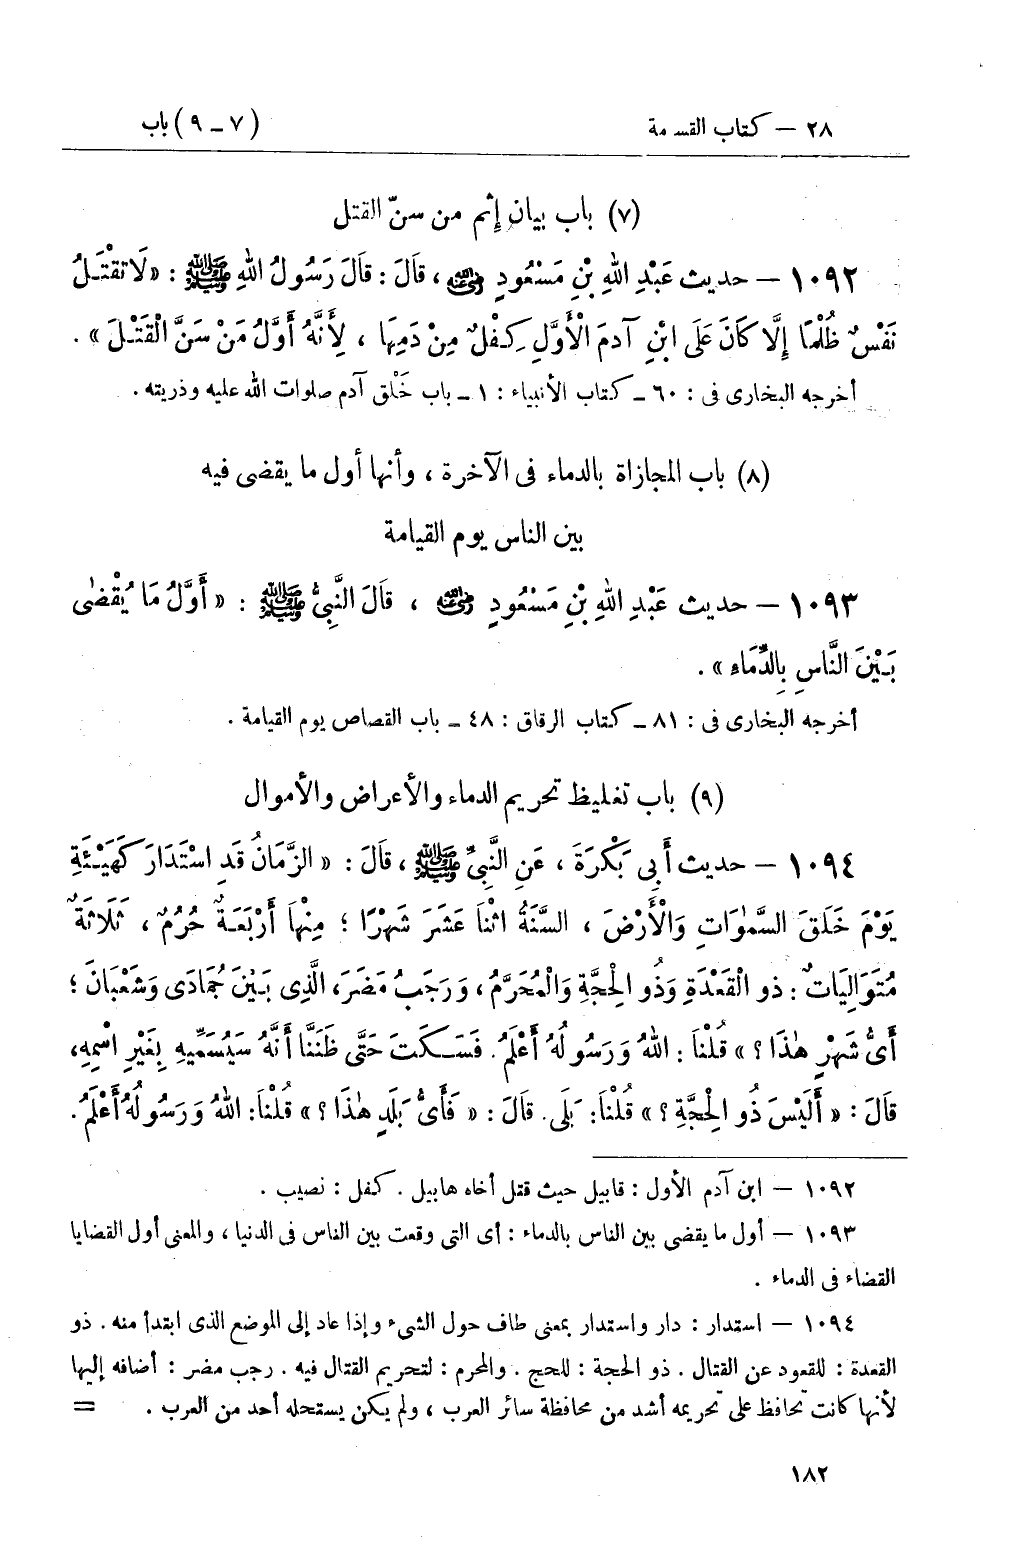 ٢٨ — كتاب القسامة (٧ — ٩) باب
(٧) باب بيان إثم من سنّ القتل
١٠٩٢ — حديث عَبْدِ اللهِ بْنِ مَسْعُودٍ رضي الله عنه، قَالَ: قَالَ رَسُولُ اللهِ ﷺ: «لَا تُقْتَلُ
نَفْسٌ ظُلْمًا إِلَّا كَانَ عَلَى ابْنِ آدَمَ الْأَوَّلِ كِفْلٌ مِنْ دَمِهَا، لِأَنَّهُ أَوَّلُ مَنْ سَنَّ الْقَتْلَ».
أخرجه البخارى فى: ٦٠ — كتاب الأنبياء: ١ — باب خَلْق آدم صلوات الله عليه وذريته.
(٨) باب المجازاة بالدماء فى الآخرة، وأنها أول ما يقضى فيه
بين الناس يوم القيامة
١٠٩٣ — حديث عَبْدِ اللهِ بْنِ مَسْعُودٍ رضي الله عنه، قَالَ النَّبِىُّ ﷺ: «أَوَّلُ مَا يُقْضَى
بَيْنَ النَّاسِ بِالدِّمَاءِ».
أخرجه البخارى فى: ٨١ — كتاب الرقاق: ٤٨ — باب القصاص يوم القيامة.
(٩) باب تغليظ تحريم الدماء والأعراض والأموال
١٠٩٤ — حديث أَبِى بَكْرَةَ، عَنِ النَّبِىِّ ﷺ، قَالَ: «الزَّمَانُ قَدِ اسْتَدَارَ كَهَيْئَةِ
يَوْمَ خَلَقَ السَّمٰوَاتِ وَالْأَرْضَ، السَّنَةُ اثْنَا عَشَرَ شَهْرًا؛ مِنْهَا أَرْبَعَةٌ حُرُمٌ، ثَلَاثَةٌ
مُتَوَالِيَاتٌ: ذو الْقَعْدَةِ وَذُو الْحِجَّةِ وَالْمُحَرَّمُ، وَرَجَبُ مُضَرَ، الَّذِى بَيْنَ جُمَادَى وَشَعْبَانَ؛
أَىُّ شَهْرٍ هٰذَا؟» قُلْنَا: اللهُ وَرَسُولُهُ أَعْلَمُ. فَسَكَتَ حَتَّى ظَنَنَّا أَنَّهُ سَيُسَمِّيهِ بِغَيْرِ اسْمِهِ،
قَالَ: «أَلَيْسَ ذُو الْحِجَّةِ؟» قُلْنَا: بَلَى. قَالَ: «فَأَىُّ بَلَدٍ هٰذَا؟» قُلْنَا: اللهُ وَرَسُولُهُ أَعْلَمُ.
١٠٩٢ — ابن آدم الأول: قابيل حيث قتل أخاه هابيل. كفل: نصيب.
١٠٩٣ — أول ما يقضى بين الناس بالدماء: أى التى وقعت بين الناس فى الدنيا، والمعنى أول القضايا
القضاء فى الدماء.
١٠٩٤ — استدار: دار واستدار بمعنى طاف حول الشىء وإذا عاد إلى الموضع الذى ابتدأ منه. ذو
القعدة: للقعود عن القتال. ذو الحجة: للحج. والمحرم: لتحريم القتال فيه. رجب مضر: أضافه إليها
لأنها كانت تحافظ على تحريمه أشد من محافظة سائر العرب، ولم يكن يستحله أحد من العرب. =
١٨٢